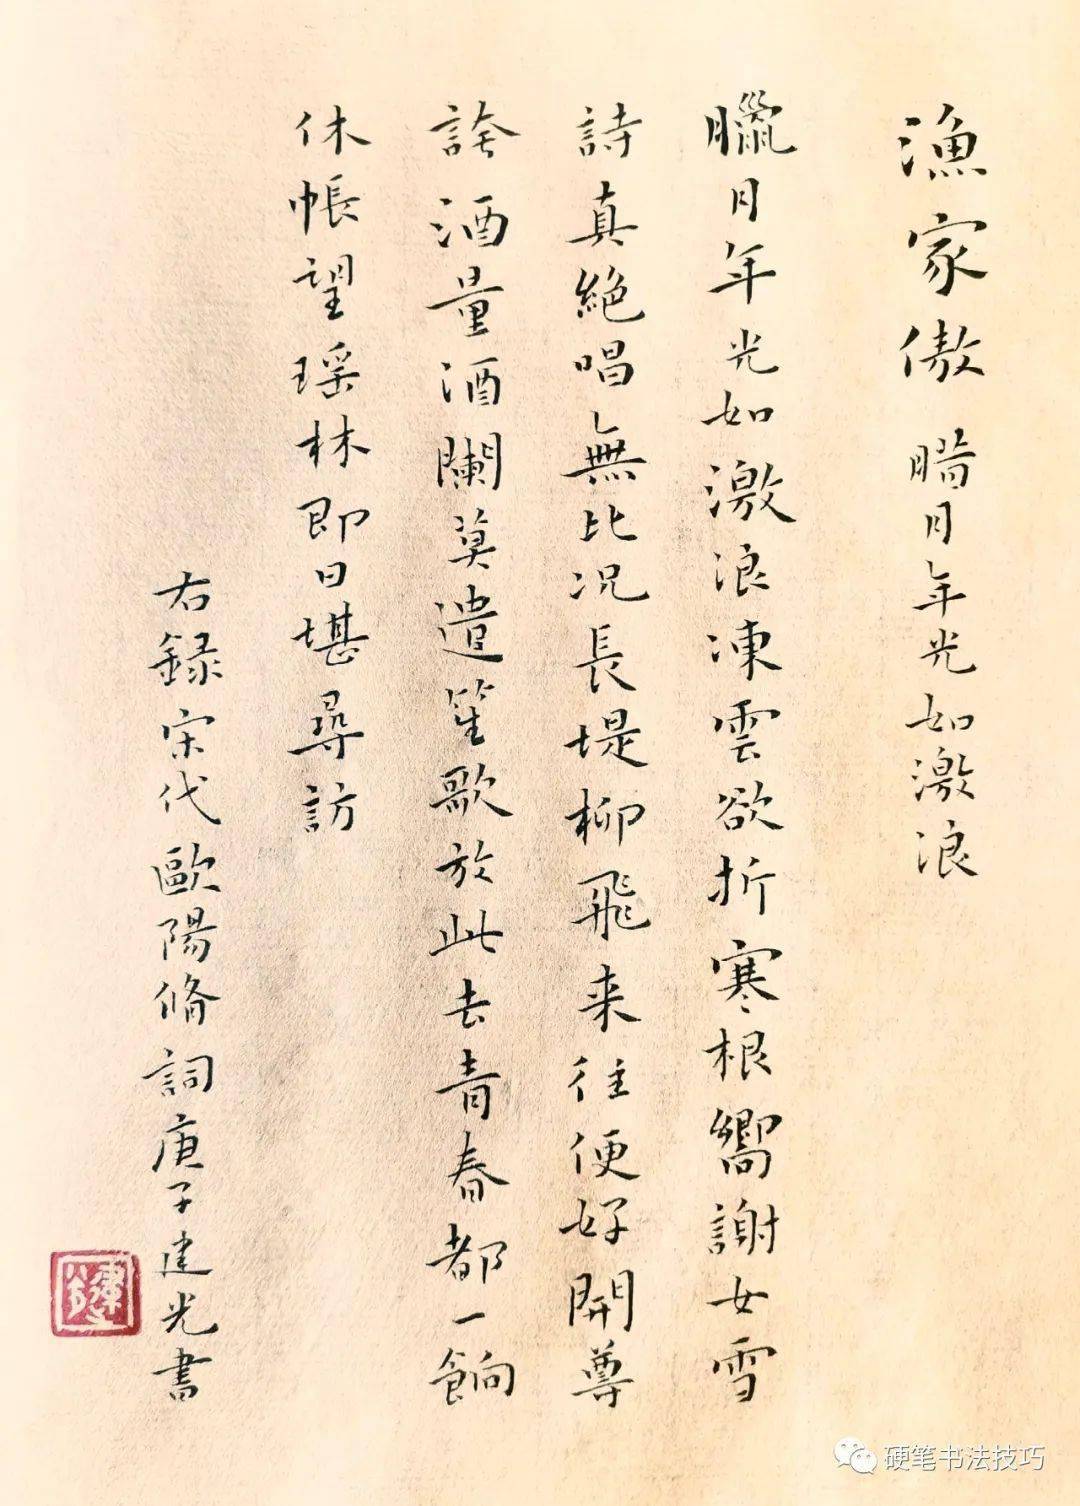 漁家傲 腊月年光如激浪
臘月年光如激浪凍雲欲折寒根嚮謝女雪
詩真絶唱無比况長堤柳飛来往便好開尊
誇酒量酒闌莫遣笙歌放此去青春都一餉
休帳望瑶林即日堪尋訪
右録宋代歐陽脩詞庚子建光書
硬笔书法技巧